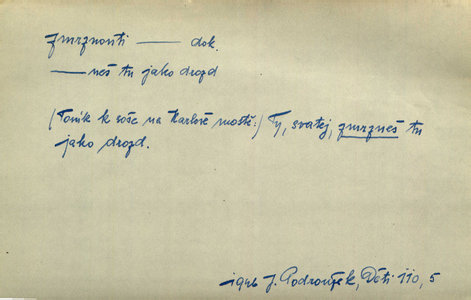 zmrznouti — dok.
— neš tu jako drozd
(Toník k soše na Karlově mostě:) Ty, svatej, zmrzneš tu
jako drozd.
1946 J. Podroužek, Děti 110, 5